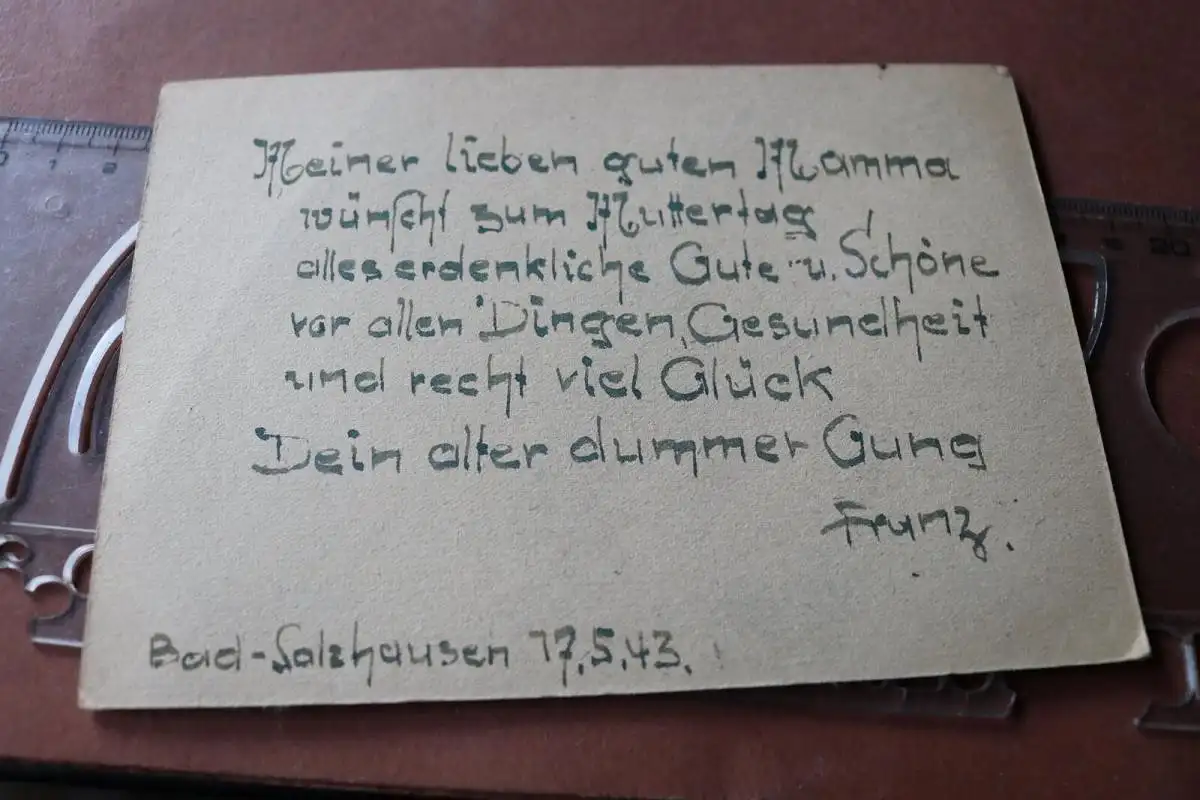 Meiner lieben guten Mamma
wünscht zum Muttertag
alles erdenkliche Gute u. Schöne
vor allen Dingen, Gesundheit
und recht viel Glück
Dein alter dummer Gung
Franz.
Bad-Salzhausen 17.5.43.
0 1 2